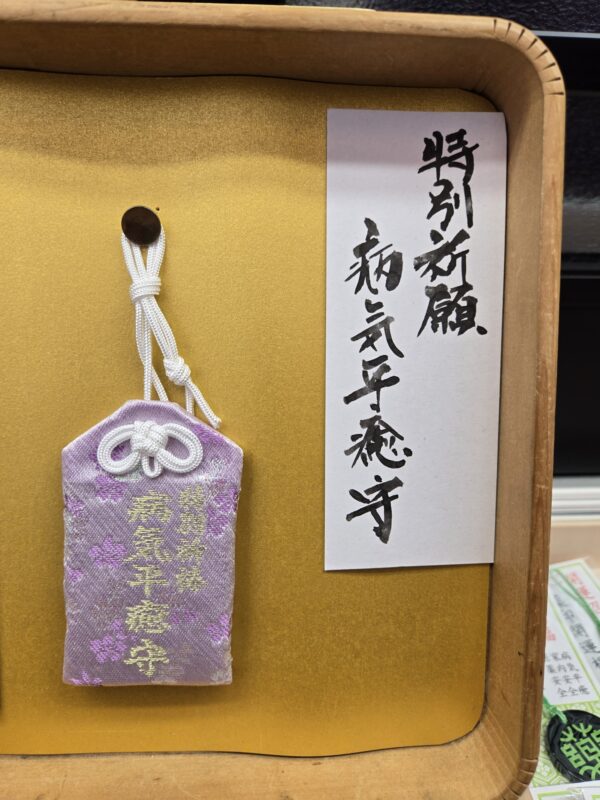 特別祈願
病気平癒守
特別祈祷
病氣平癒守